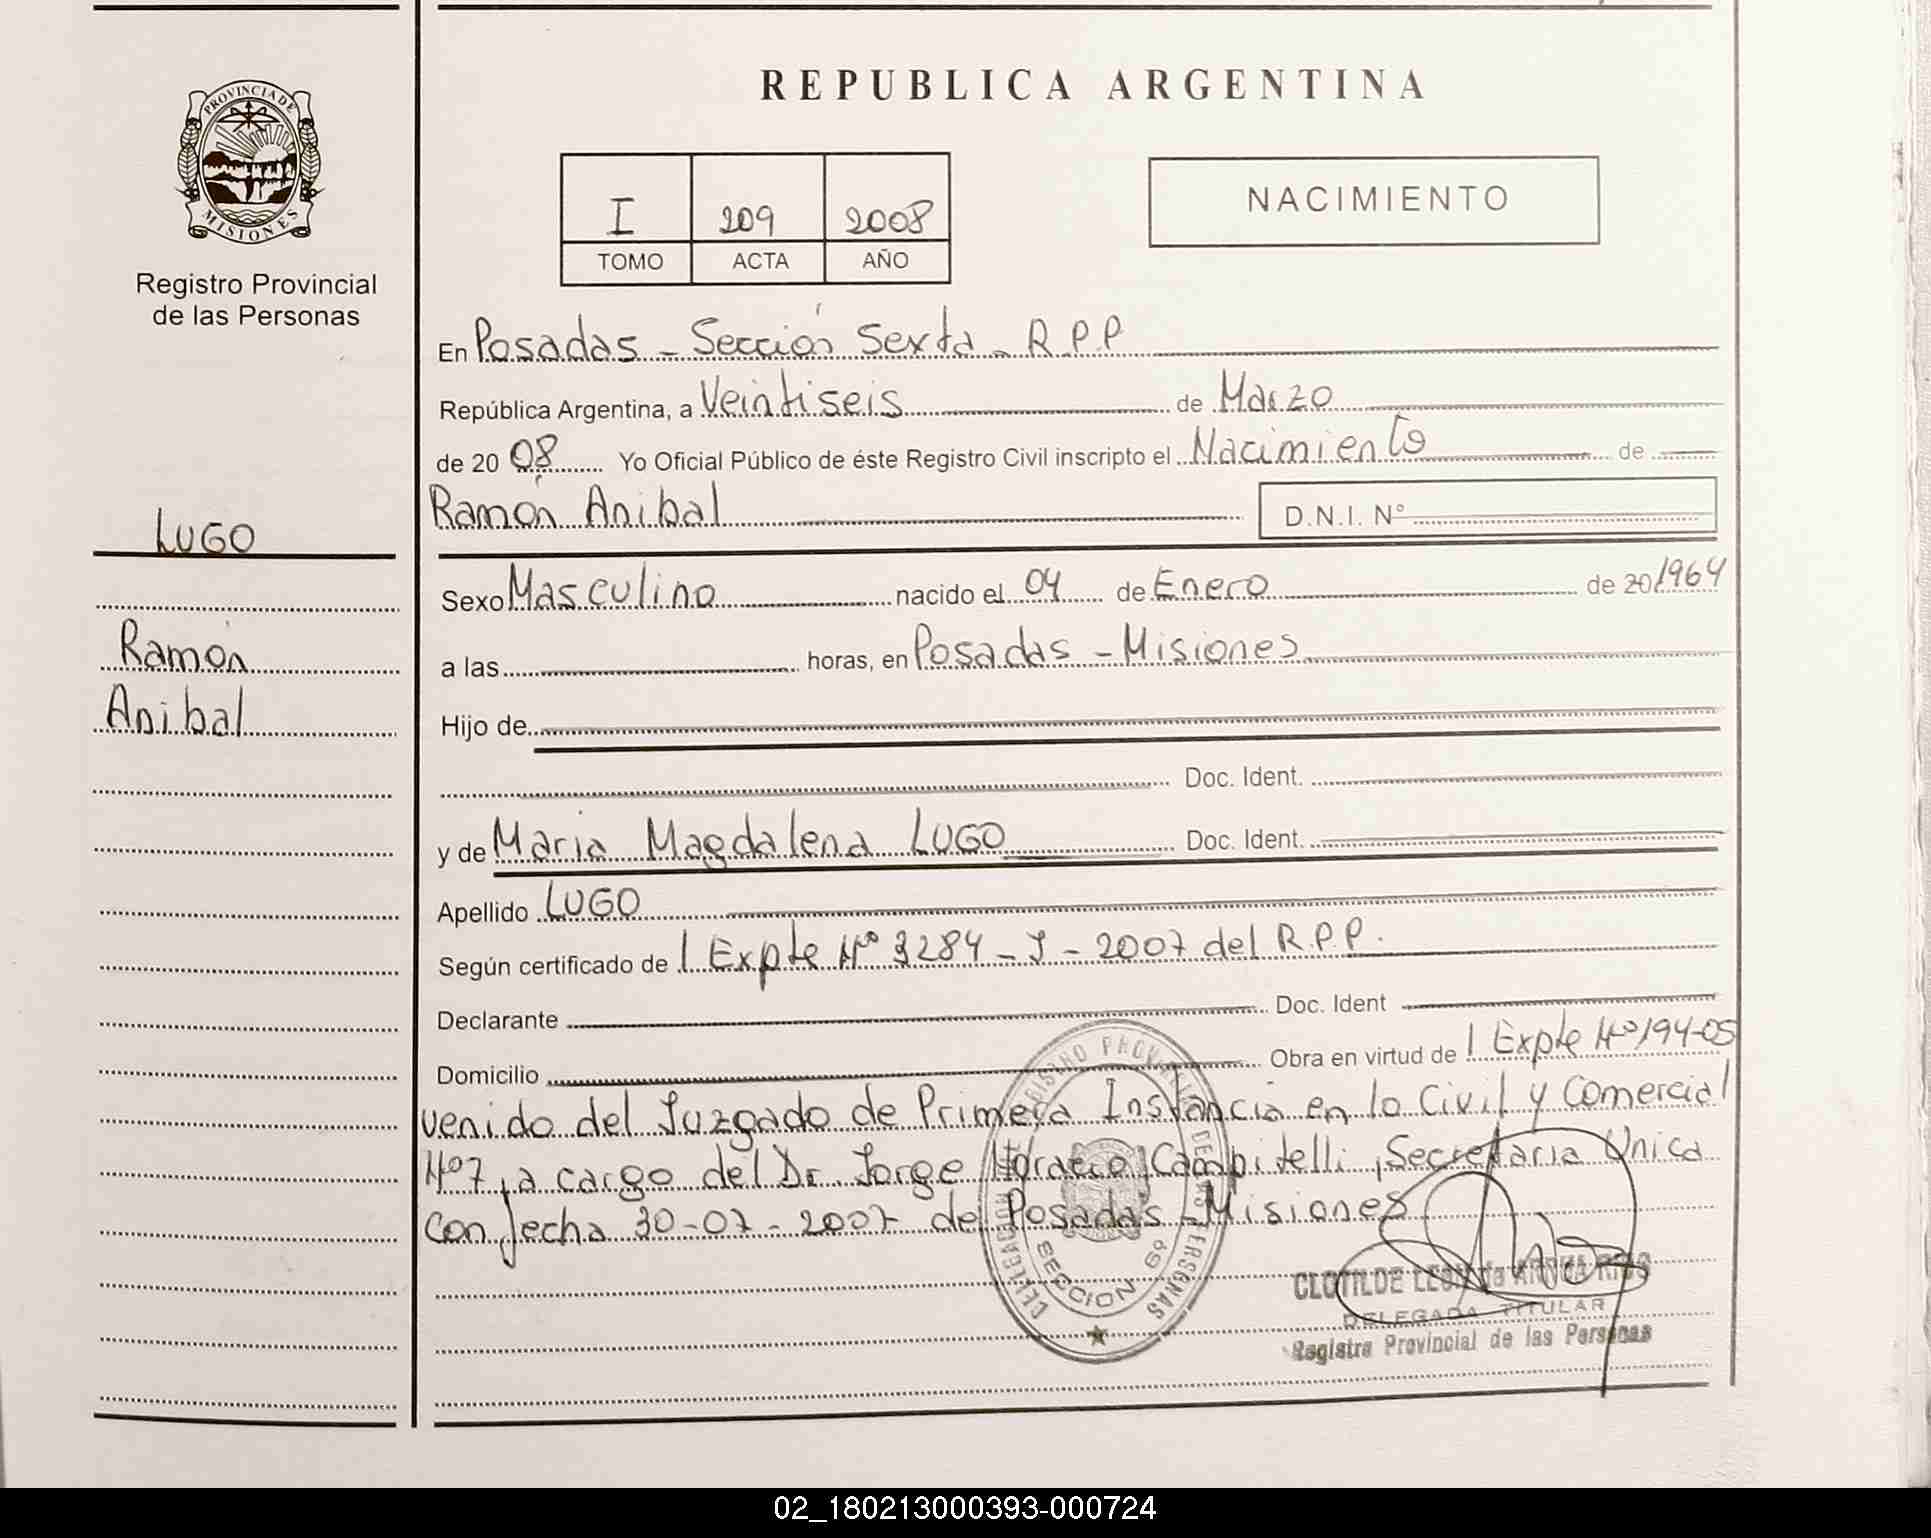 REPUBLICA ARGENTINA
PROVINCIA DE
MISIONES
Registro Provincial
de las Personas
I 209 2008
TOMO ACTA AÑO
NACIMIENTO
En Posadas - Sección Sexta - R.P.P
República Argentina, a Veintiseis de Marzo
de 20 08 Yo Oficial Público de éste Registro Civil inscripto el Nacimiento de
Ramón Anibal D.N.I. Nº
LUGO
Ramón
Anibal
Sexo Masculino nacido el 04 de Enero de 20/1964
a las horas, en Posadas - Misiones
Hijo de
Doc. Ident.
y de Maria Magdalena LUGO Doc. Ident.
Apellido LUGO
Según certificado de / Expte Nº 3284 - J - 2007 del R.P.P.
Declarante Doc. Ident
Domicilio Obra en virtud de / Expte Nº 194-05
venido del Juzgado de Primera Instancia en lo Civil y Comercial
Nº7, a cargo del Dr. Jorge Horacio Campitelli, Secretaria Unica
con fecha 30-07-2007 de Posadas - Misiones
DELEGACION REGISTRO PROVINCIAL DE LAS PERSONAS
SECCION 6º
CLOTILDE
DELEGADA TITULAR
Registro Provincial de las Personas
02_180213000393-000724